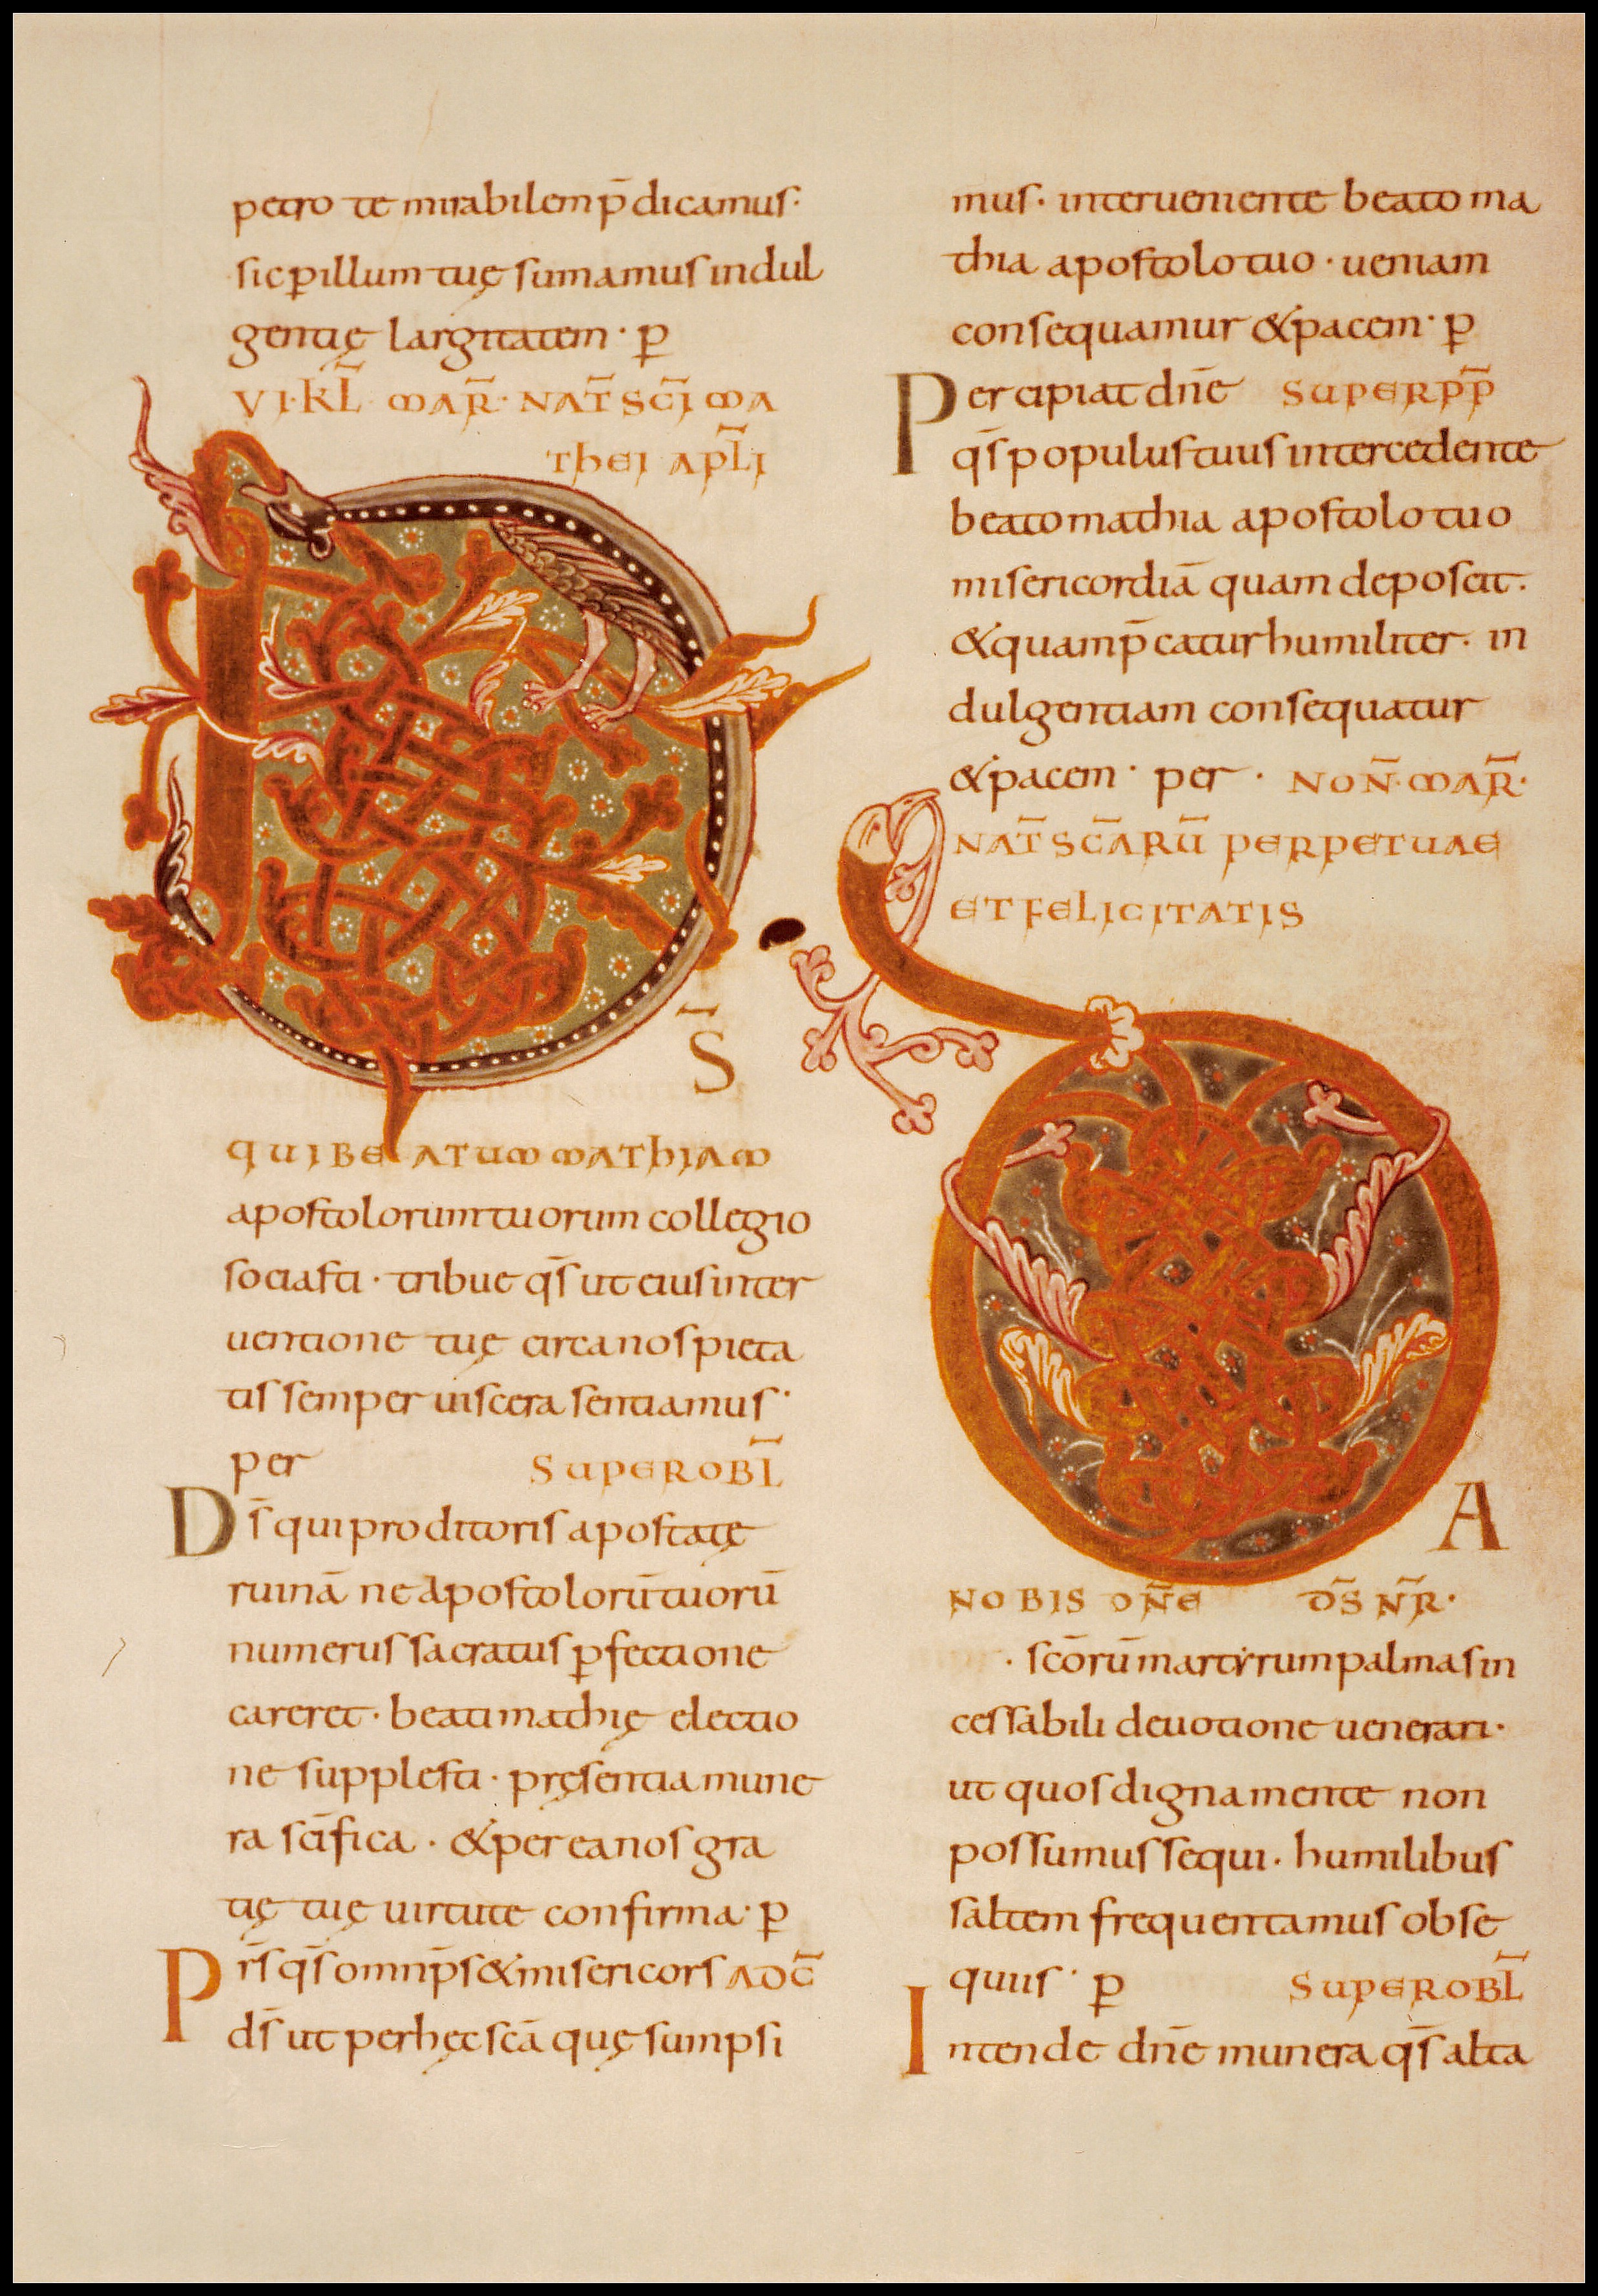 petro te mirabilem p̄dicamus·
sic ꝑ illum tuę sumamus indul
gentię largitatem · ꝑ
VI·KL̄ MAR̄·NAT̄ SC̄I MA
THEI AP̄LI
D
S̄
QUI BEATUM MATHIAM
apostolorum tuorum collegio
sociasti · tribue q̄s ut eius inter
uentione tuę circa nos pieta
tis semper uiscera sentiamus·
per SUPER OBL̄
D s̄ qui proditoris apostatę
ruinā ne apostolorū tuorū
numerus sacratus ꝑfectione
careret · beati mathię electio
ne supplesti · pręsentia mune
ra sc̄ifica · & per ea nos gra
tię tuę uirtute confirma· ꝑ
P r̄s q̄s omnip̄s & misericors AD C̄
ds̄ ut per hęc sc̄a quę sumpsi
mus · interueniente beato ma
thia apostolo tuo · ueniam
consequamur & pacem· ꝑ
Percipiat dn̄e SUPER PP̄
q̄s populus tuus intercedente
beato mathia apostolo tuo
misericordiā quam deposcit·
& quam p̄catur humiliter· in
dulgentiam consequatur
& pacem · per · NON̄·MAR̄·
NAT̄ SC̄ARŪ PERPETUAE
ET FELICITATIS
D
A
NOBIS DN̄E DS̄ NR̄·
· sc̄orū martyrum palmas in
cessabili deuotione uenerari·
ut quos digna mente non
possumus sequi · humilibus
saltem frequentamus obse
quiis · ꝑ SUPER OBL̄
Intende dn̄e munera q̄s alta